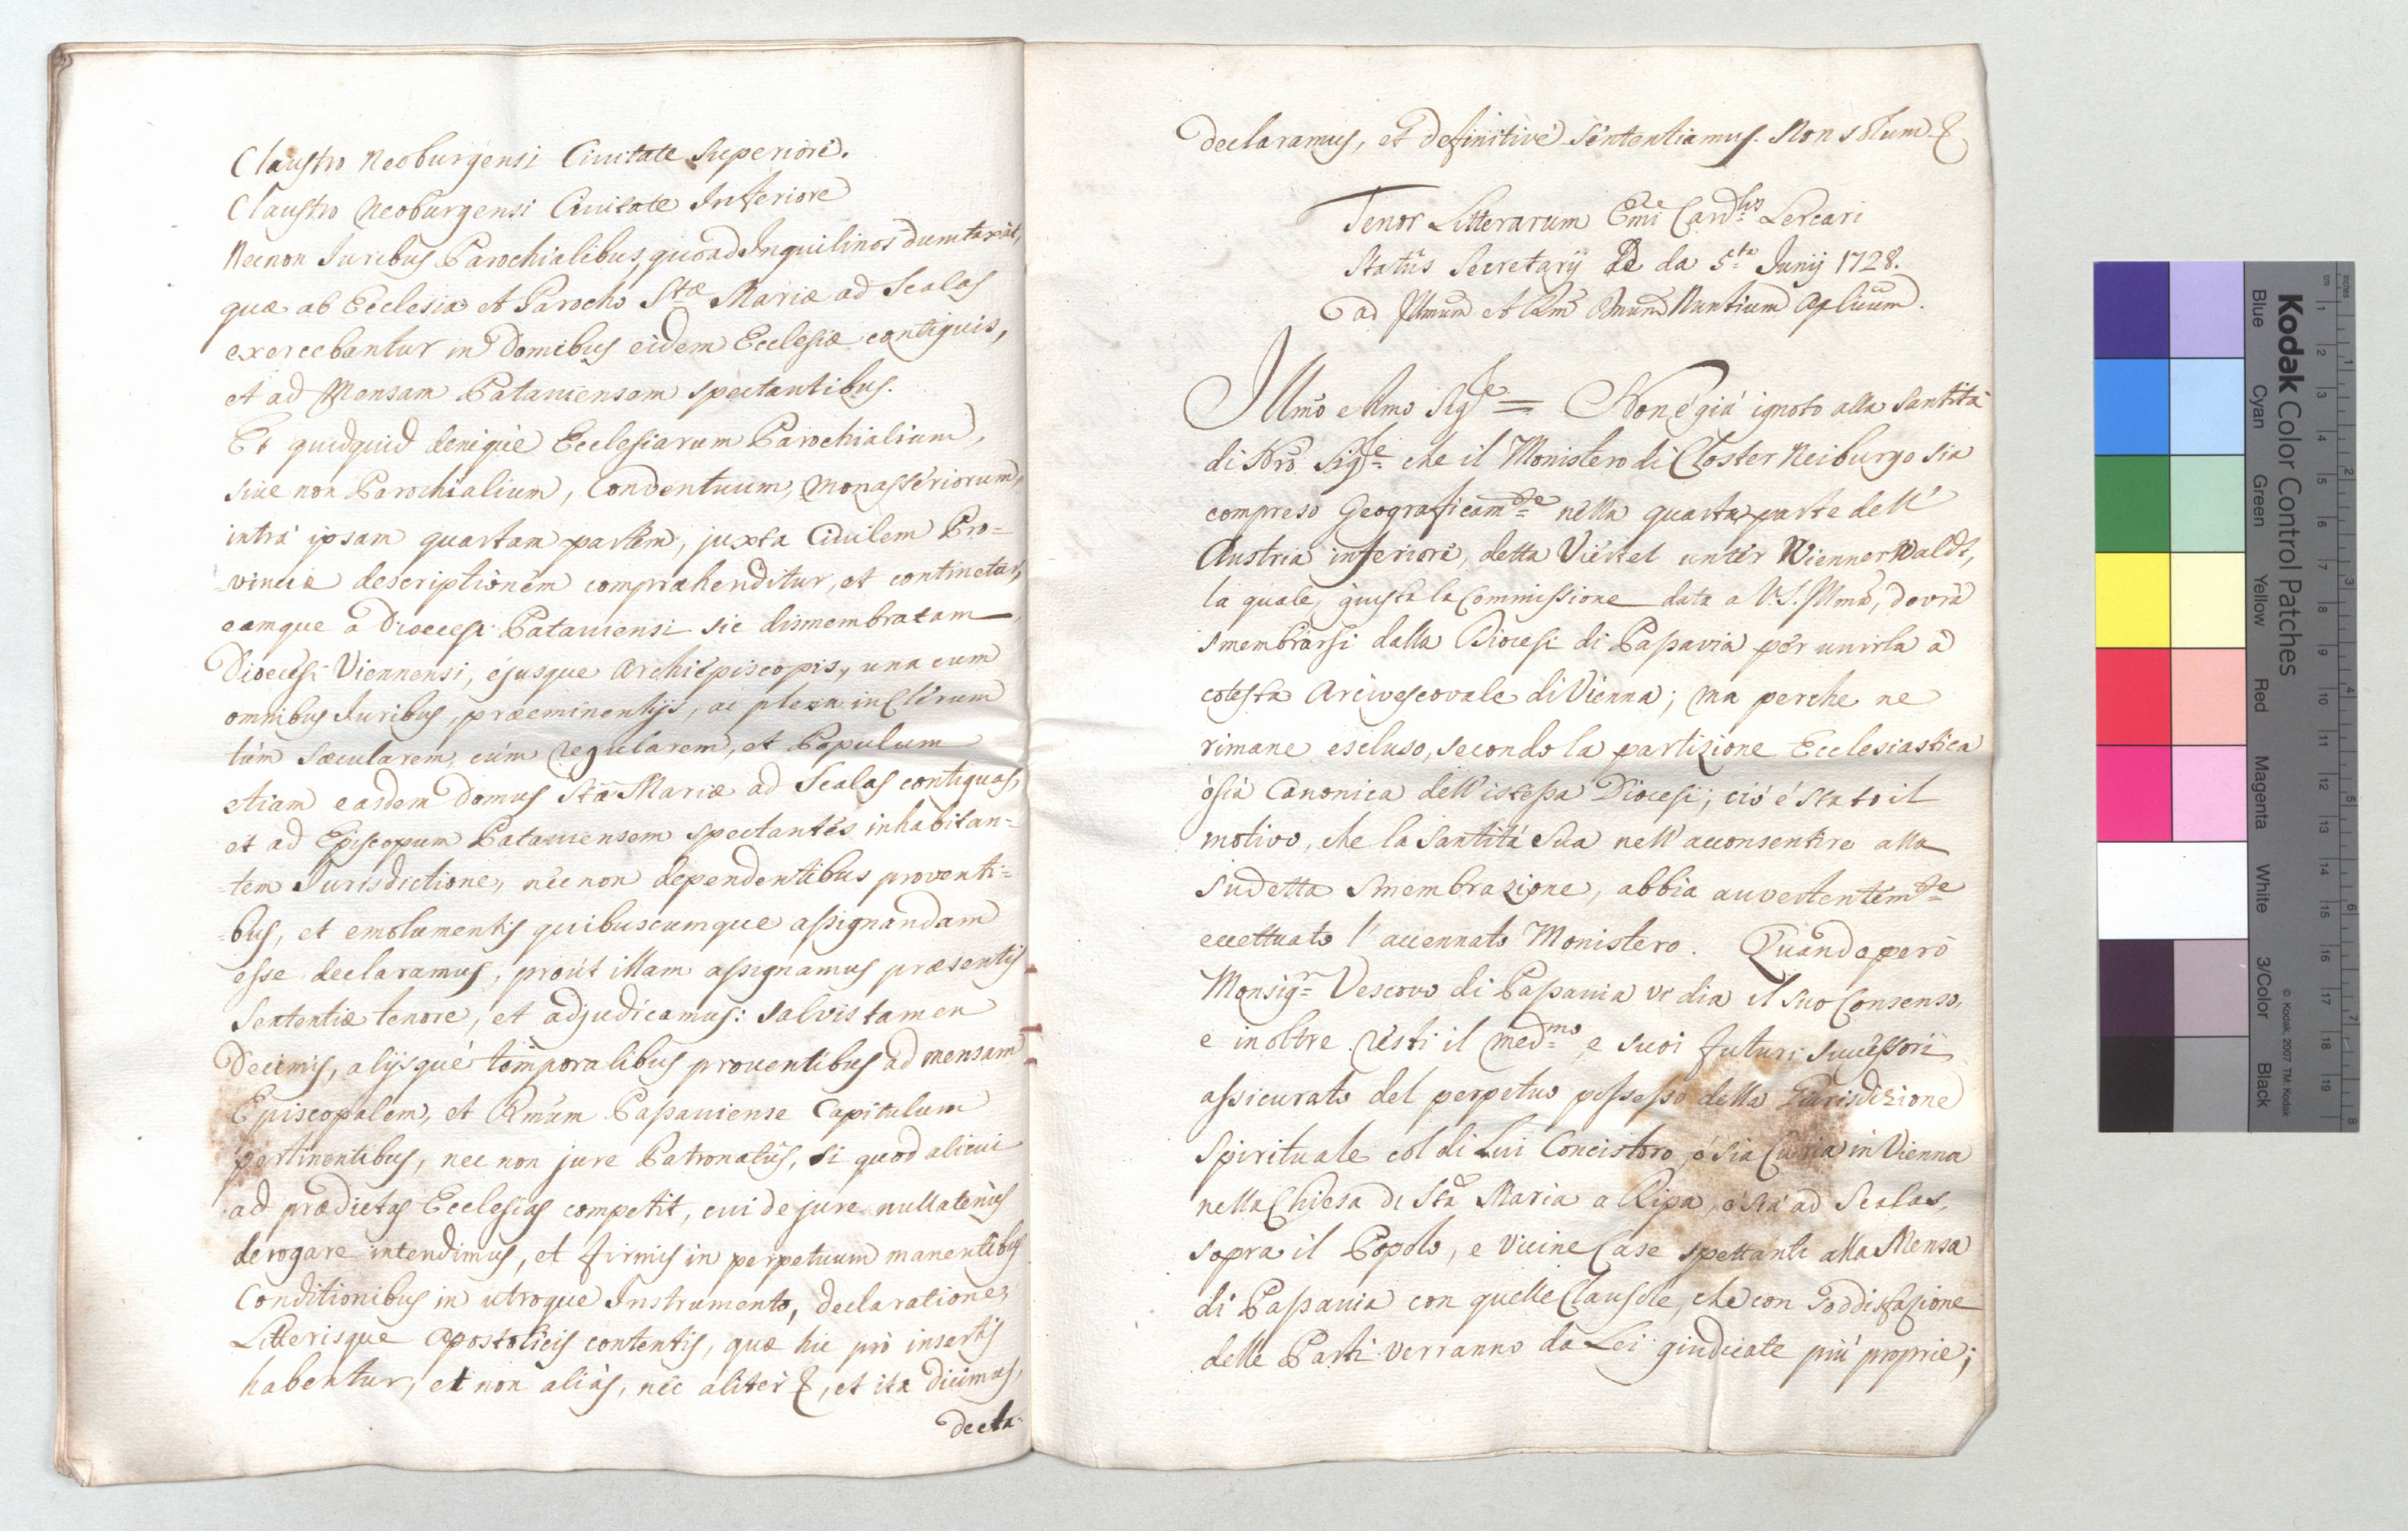 Claustro Neoburgensi Civitate Superiori.
Claustro Neoburgensi Civitate Inferiore
Necnon Juribus Parochialibus, quoad Inquilinos dumtaxat,
quæ ab Ecclesia et Parocho Stæ Mariæ ad Scalas
exercebantur in Domibus eidem Ecclesiæ contiguis,
et ad Mensam Pataviensem spectantibus.
Et quidquid denique Ecclesiarum Parochialium,
sive non Parochialium, Conventuum, Monasteriorum,
intrà ipsam quartam partem, juxta Civilem Pro=
=vinciæ descriptionem compræhenditur, et continetur,
eamque a Dioecesi Pataviensi sic dismembratam
Dioecesi Viennensi, ejusque Archiepiscopis, una cum
omnibus Juribus, præeminentijs, ac plena in Clerum
tùm sæcularem, cùm regularem, et Populum
etiam easdem Domus Stæ Mariæ ad Scalas contiguas,
et ad Episcopum Pataviensem spectantes inhabitan=
=tem Jurisdictione, nec non dependentibus proventi=
=bus, et emolumentis quibuscumque assignandam
esse declaramus, proùt illam assignamus præsentis
Sententiæ tenore, et adjudicamus: salvis tamen
Decimis, alijsque temporalibus proventibus ad mensam
Episcopalem, et Rmum Passaviense Capitulum
pertinentibus, nec non jure Patronatûs, si quod alicui
ad prædictas Ecclesias competit, cui de jure nullatenùs
derogare intendimus, et firmis in perpetuum manentibus
Conditionibus in utroque Instrumento, declaratione,
Litterisque Apostolicis contentis, quæ hic pro insertis
habentur, et non aliàs, nec aliter &, et ita dicimus,
decla-
declaramus, et definitivè sententiamus. Non solum &
Tenor Litterarum Emi Cardlis Lercari
Statûs Secretarij de da 5ta Junij 1728.
ad Illmum et Rmm Dnum Nuntium Aplicum.
Illmo e Rmo Sigre = Non è già ignoto alla Santità
di Nro Sigre che il Monistero di Closter Neiburgo sia
compreso Geograficamte nella quarta parte dell'
Austria inferiori, detta Viertel unter Wienner Waldt,
la quale, giusta la Commissione data a V.S. Illma, dovrà
smembrarsi dalla Diocesi di Passavia per unirla à
cotesta Arcivescovale di Vienna; ma perche ne
rimane escluso, secondo la partizione Ecclesiastica
òsia Canonica dell'istessa Diocesi; ciò è stato il
motivo, che la Santità Sua nell'acconsentire alla
sudetta smembrazione, abbia avvertentemte
eccettuato l'accennato Monistero. Quando però
Monsigr Vescovo di Passavia vi dia il suo Consenso,
e inoltre resti il medmo, e suoi futuri successori
assicurato del perpetuo possesso della Giurisdizione
Spirituale col di Lui Concistoro ò sia Curia in Vienna
nella Chiesa di Sta Maria a Ripa, ò sia ad Scalas,
sopra il Popolo, e vicine Case spettanti alla Mensa
di Passavia con quelle Clausole, che con Soddisfazione
delle Parti verranno da Lei giudicate più proprie;
Kodak Color Control Patches
Blue Cyan Green Yellow Red Magenta White 3/Color Black
© Kodak, 2007 TM: Kodak